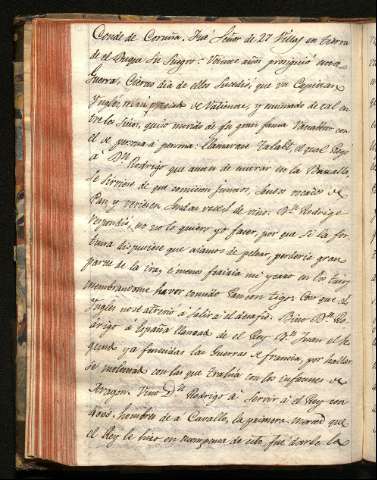 Conde de Coruña. Fué Señor de 27 Villas en tierra
de el Duque su suegro: Veinte años prosiguió en la
Guerra, Cierto dia de ellos sucedió, que un Capitan
Ynglés, mui preciado de Valiente, y enviado de tal en
tre los suios, quiso movido de su gran fama
el de persona a persona: llamavase Talabot, el qual
a Dn. Rodrigo que antes de entrar en la Batalla
se sirviese de que comiesen juntos, sendos
Pan, y veviesen sendas veces de vino: Dn. Rodrigo
respondió, no yo lo quiero yo facer, por que si la for
tuna dispusiere que aiamos de pelear, perderia gran
parte de la ira, é menos feriria mi
membrandome haver comido Pan con tigo: Con que el
Ynglés no se atrevió a salir á el desafio. Vino Dn. Ro
drigo a España llamado de el Rey Dn. Juan el se
gundo ya fenecidas las Guerras de francia, por hallar
se molestado con las que trahia con los infantes de
Aragon. Vino Dn. Rodrigo a servir a el Rey con
hombres de a Cavallo, la primera merced que
el Rey le hizo en recompensa de esto fué darle la